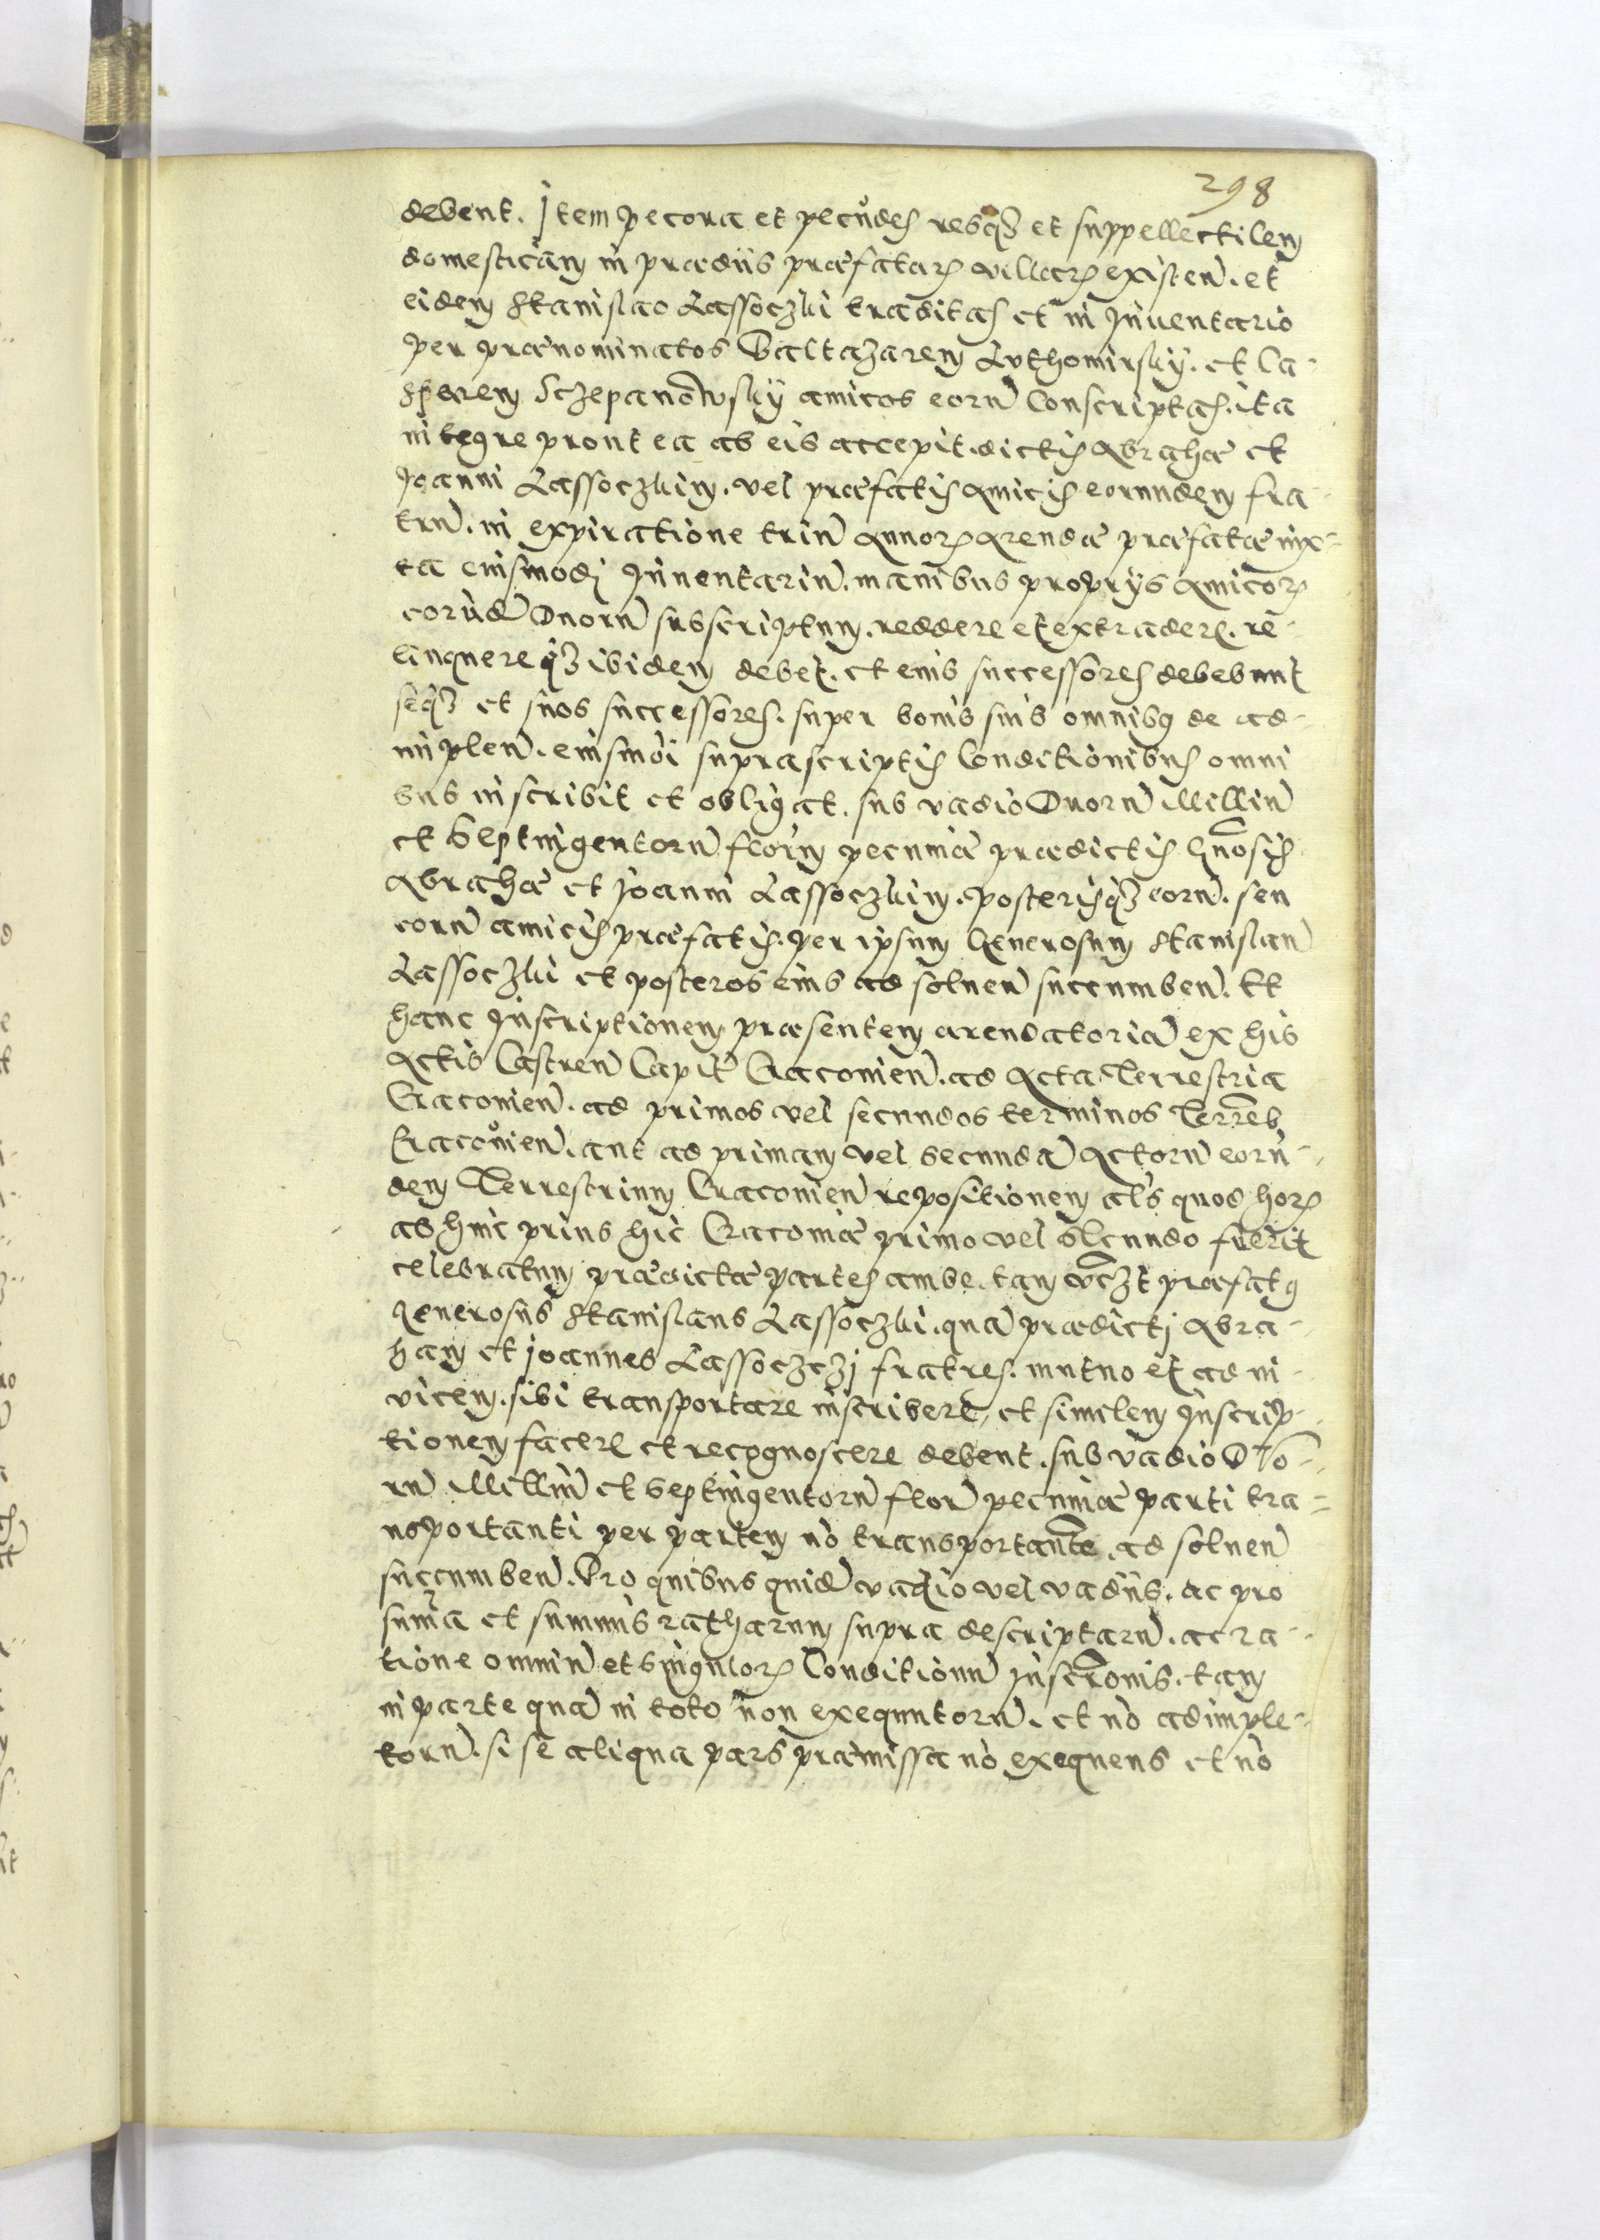 298
debent. Item pecora et pecudes resqȝ et suppellectilem
domesticam in prædiis præfatarꝫ villarꝫ existen̄. et
eidem Stanislao Lassoczki traditas et in Inuentario
per prænominatos Baltazarem Luthomirskÿ. et Ca-
sparem Sczepanowskÿ amicos eorū conscriptas. ita
integre prout ea ab eis accepit. dictis Abrahæ et
Joanni Lassoczkim. vel præfatis Amicis eorundem fra-
trū. in expiratione triū Annorꝫ Arendæ præfatæ iux-
ta eiusmodi Inuentariū. manibus proprys Amicorꝫ
eorūdē Duorū subscriptum. reddere et extradere. re-
linquereqȝ ibidem debet. et eius successores debebunt
seqȝ et suos successores. super bonis suis omnibꝰ de ad-
implen̄. eiusmōi suprascriptis Conditionibus omni
bus inscribit et obligat. sub vadio Duorū Milliū
et Septingentorū florin̄ pecuniæ prædictis Gn̄osis
Abrahæ et Joanni Lassoczkim. posterisqȝ eorū. seu
eorū amicis præfatis. per ipsum Generosum Stanislaū
Lassoczki et posteros eius ad soluen̄ succumben̄. Et
hanc Inscriptionem præsentem arendatoriā ex his
Actis Castren̄ Capit̄ Cracouien̄. ad Acta Terrestria
Cracouien̄. ad primos vel secundos terminos Terreb
Cracouien̄. aut ad primam vel secundā Actorū eorū-
dem Terrestrium Cracouien̄ repositionem al's quod horꝫ
ab hinc prius hic Cracouiæ primo vel secundo fuerit
celebratum prædictæ partes ambe. tam vc̄ȝt præfatꝰ
Generosus Stanislaus Lassoczki. quā prædicti Abra-
ham et Joannes Lassoczczj fratres. mutuo et ad in-
vicem. sibi transportare inscribere, et similem Inscrip-
tionem facere et recognoscere debent. sub vadio Duo-
rū Milliū et Septingentorū flor̄ pecuniæ parti tra-
nsportanti per partem nō transportan̄te. ad soluen̄
succumben̄. Pro quibus quidē vadio vel vadiis. ac pro
sum̄a et summis ratharum supra descriptarū. ac ra-
tione omniū et singulorꝫ Conditionū Inscr̄onis. tam
in parte quā in toto non exequutorū. et nō adimple-
torū. si se aliqua pars præmissa nō exequens et nō